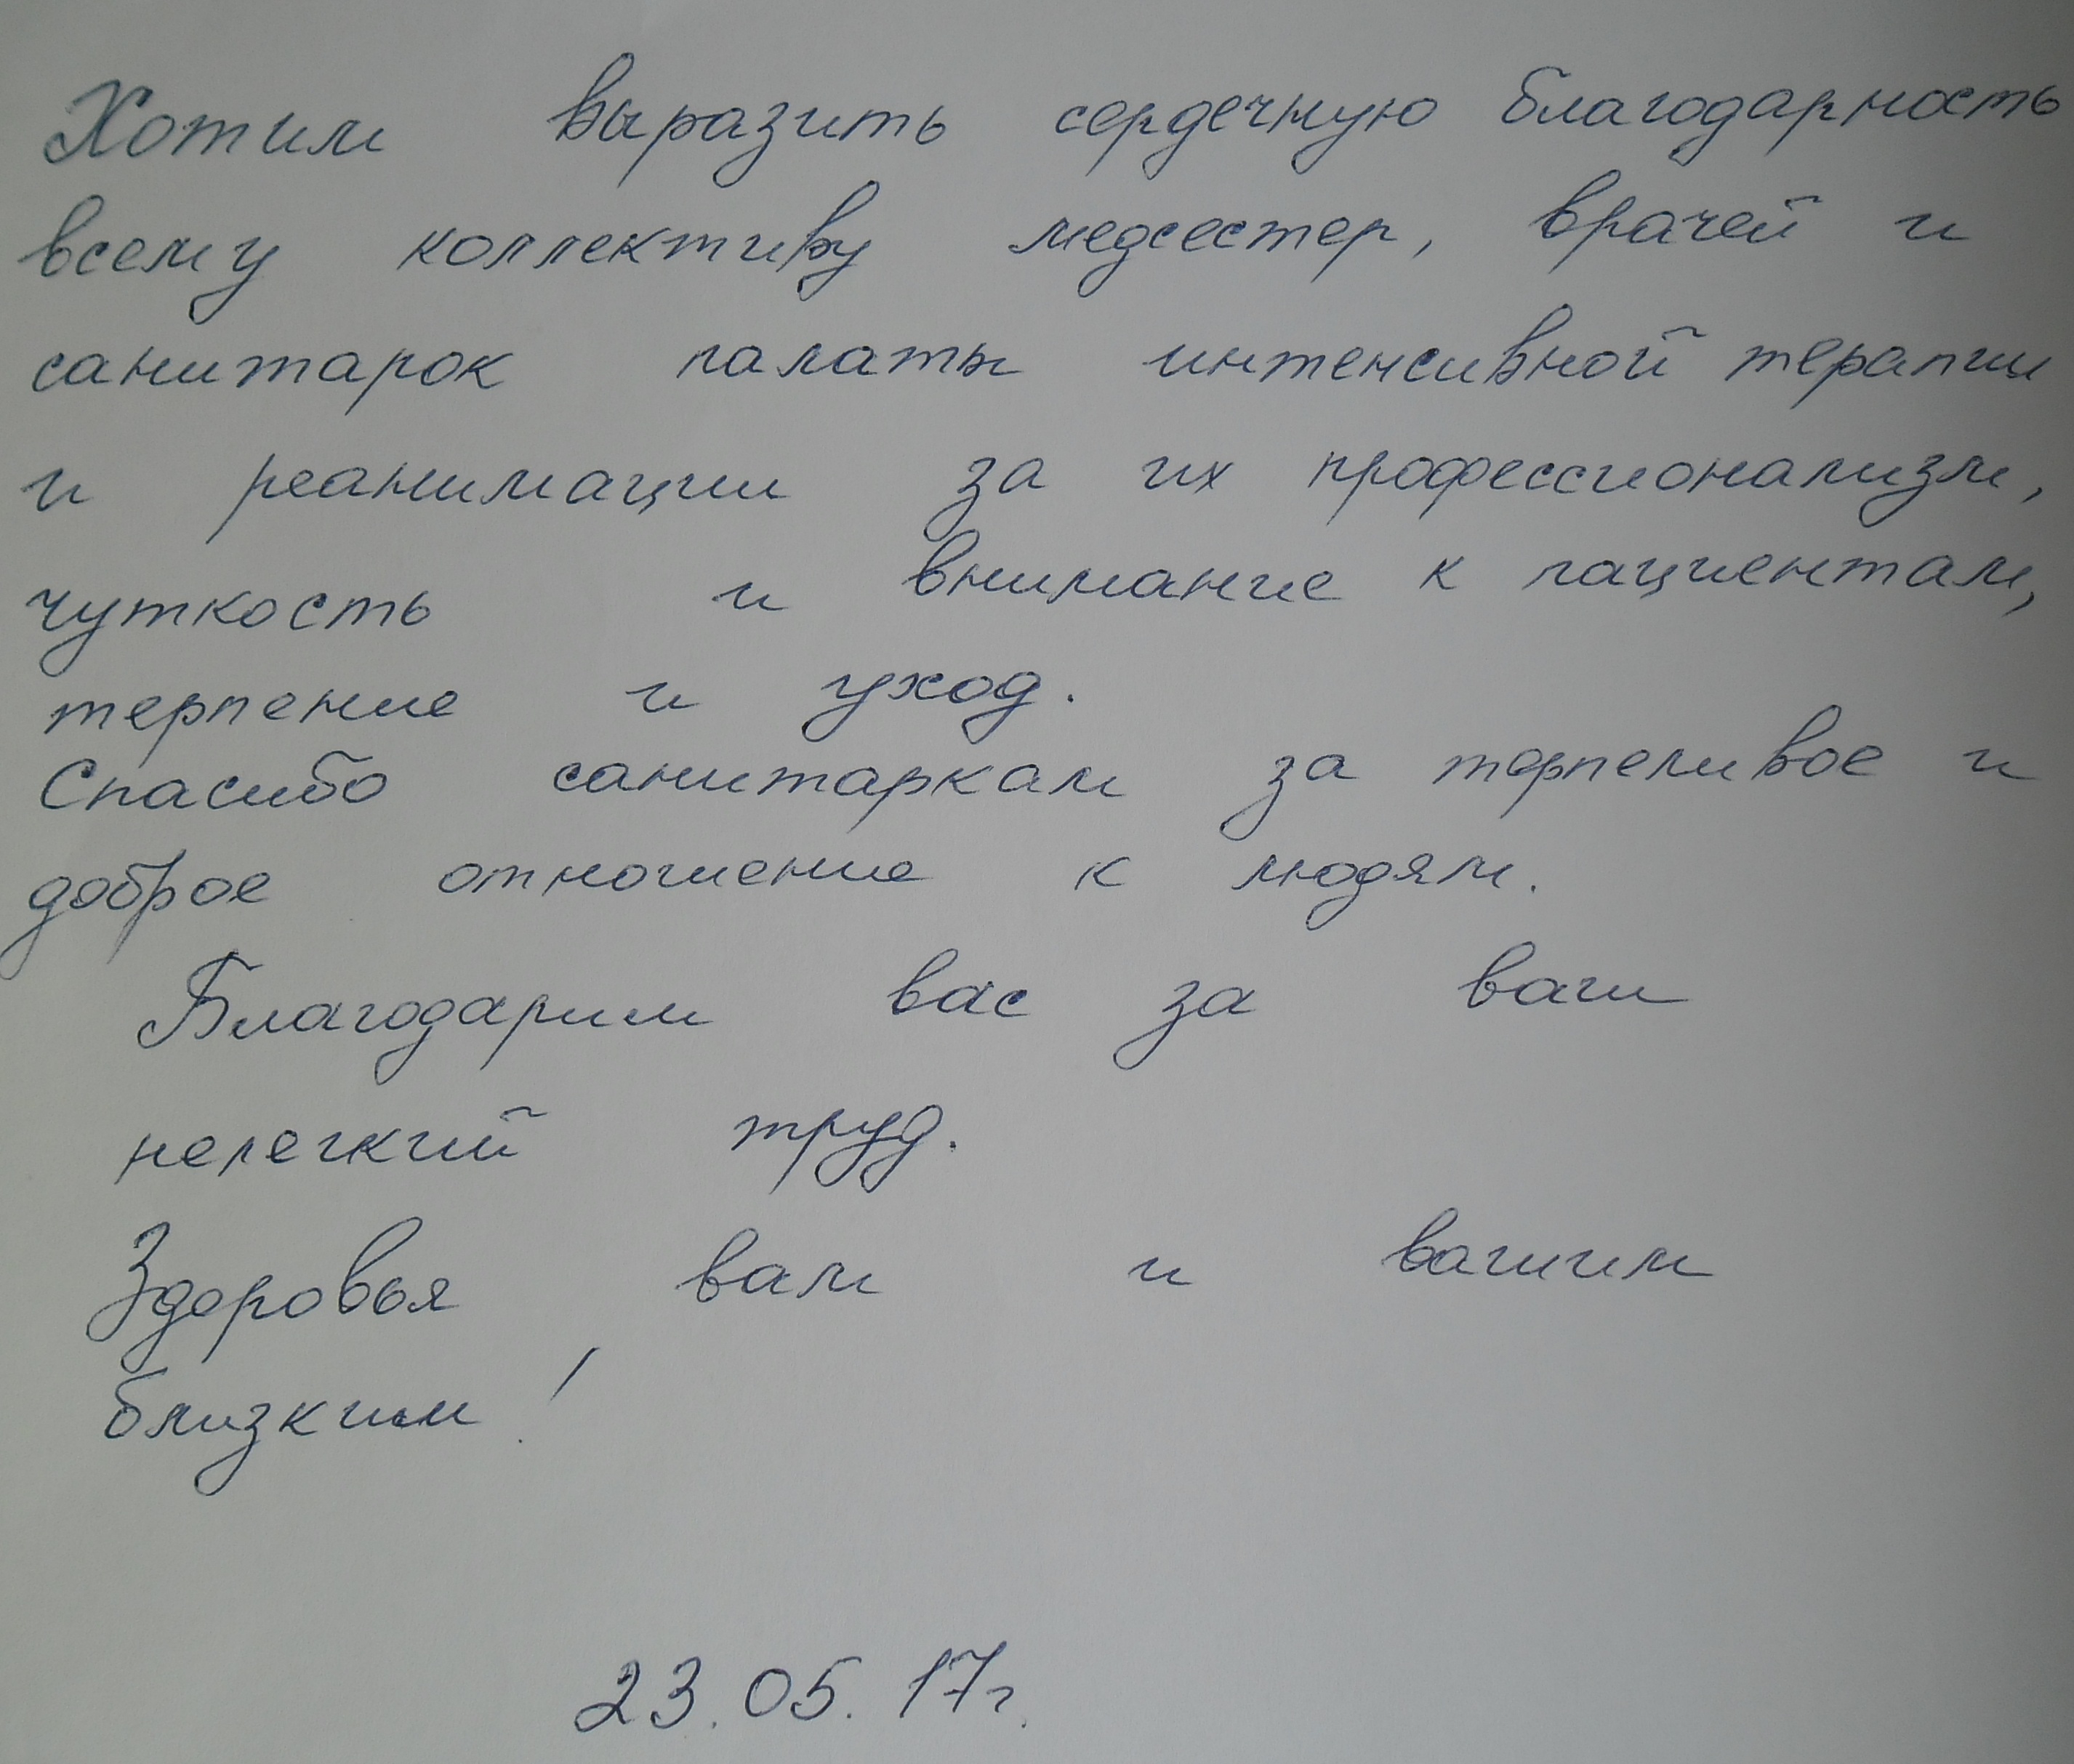 Хотим выразить сердечную благодарность
всему коллективу медсестер, врачей и
санитарок палаты интенсивной терапии
и реанимации за их профессионализм,
чуткость и внимание к пациентам,
терпение и уход.
Спасибо санитаркам за терпеливое и
доброе отношение к людям.
Благодарим вас за ваш
нелегкий труд.
Здоровья вам и вашим
близким!
23.05.17г.